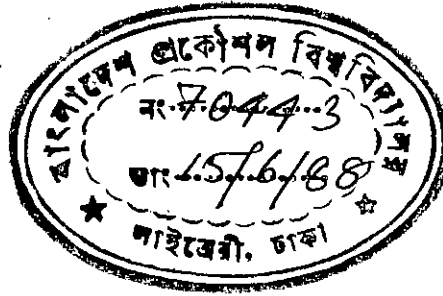 বাংলাদেশ প্রকৌশল বিশ্ববিদ্যালয়
নং 70443
তাং 15/6/88
লাইব্রেরী, ঢাকা